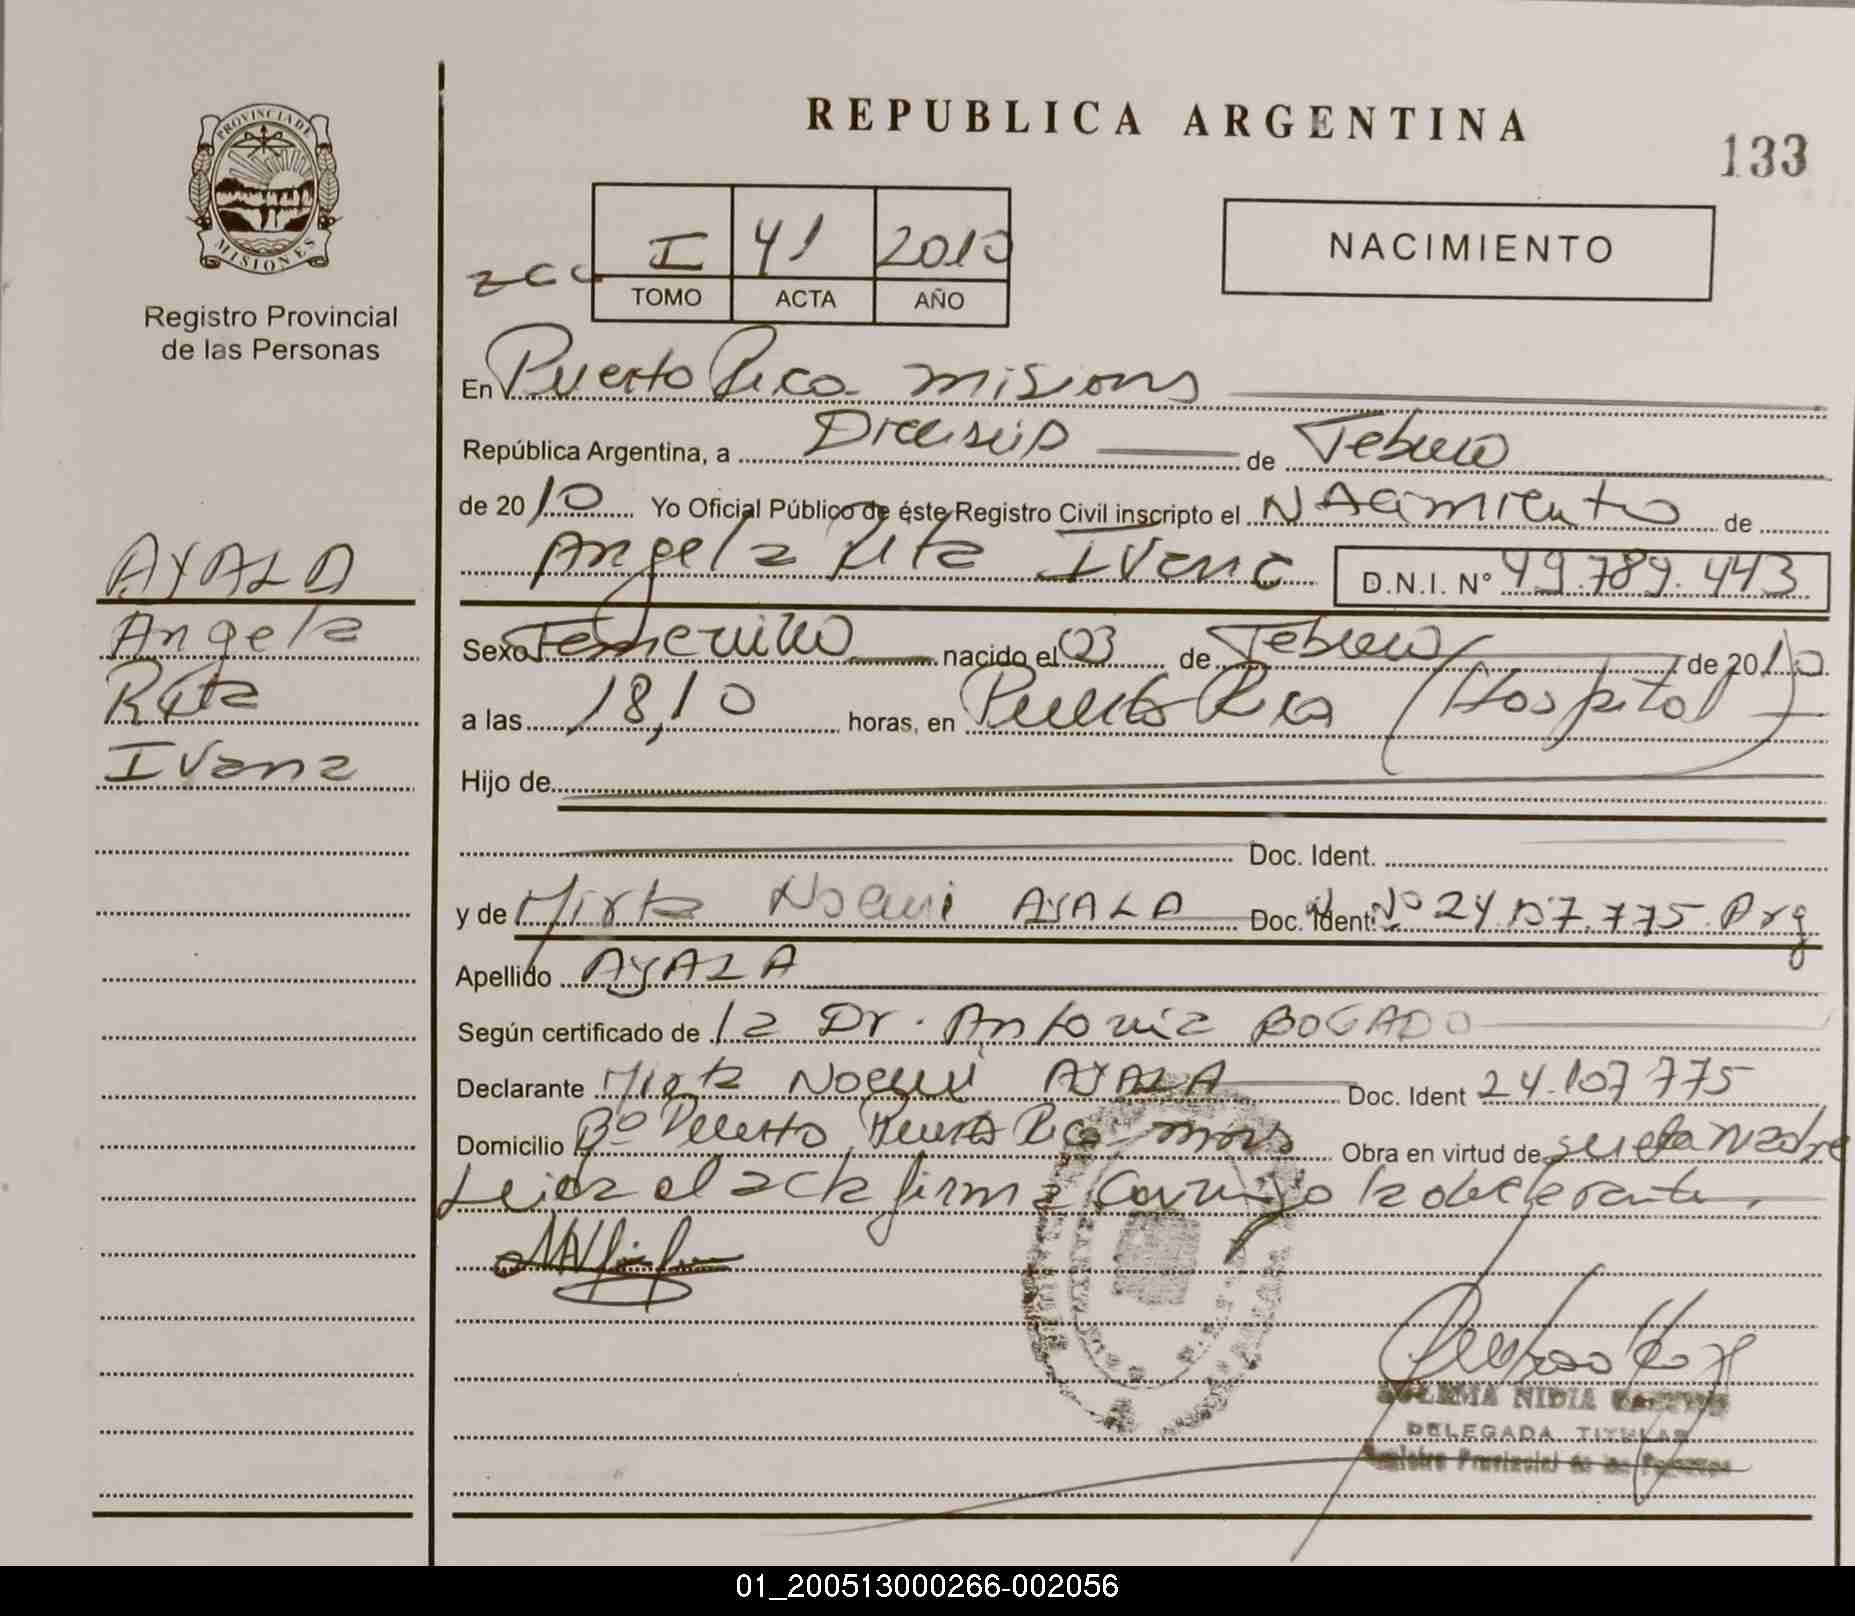 REPUBLICA ARGENTINA
133
PROVINCIA DE
MISIONES
Registro Provincial
de las Personas
I 41 2010
TOMO ACTA AÑO
NACIMIENTO
En Puerto Rico Misiones
República Argentina, a Dieciseis de Febrero
de 2010 Yo Oficial Público de éste Registro Civil inscripto el Nacimiento de
Angela Rita Ivana D.N.I. N° 49.789.443
AYALA
Angela
Rita
Ivana
Sexo Femenino nacido el 03 de Febrero de 2010
a las 18,10 horas, en Puerto Rico (Hospital)
Hijo de
Doc. Ident.
y de Mirta Noemi AYALA Doc. Ident. N° 24.107.775 Arg
Apellido AYALA
Según certificado de la Dr. Antonia BOGADO
Declarante Mirta Noemi AYALA Doc. Ident 24.107.775
Domicilio B° Puerto Rico Obra en virtud de ser la Madre
Leida el acta firma conmigo la declarante,
NIDIA
DELEGADA TITULAR
Registro Provincial de las Personas
01_200513000266-002056